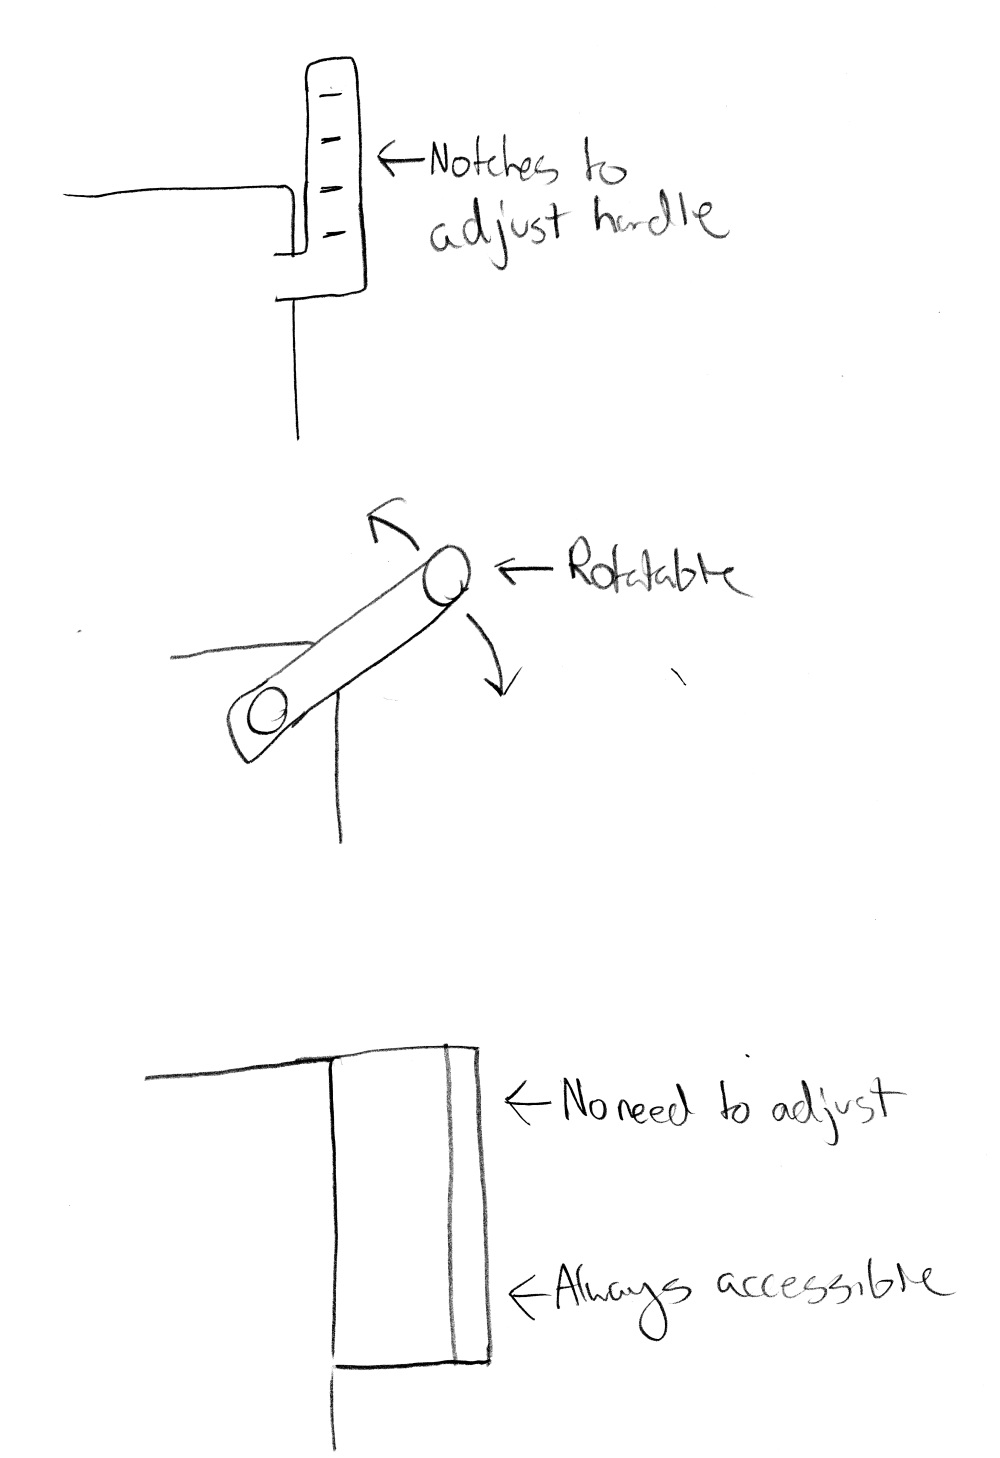 Notches to
adjust handle
Rotatable
No need to adjust
Always accessible